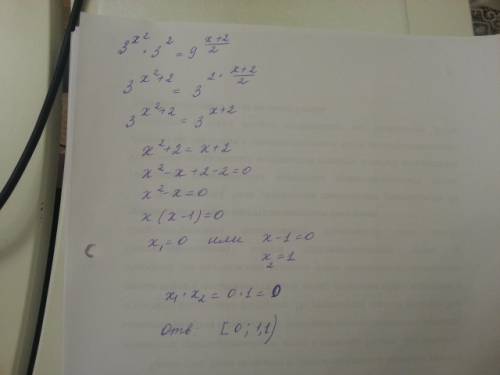 3^{x^2} · 3^2 = 9^{\frac{x+2}{2}}
3^{x^2+2} = 3^{2 · \frac{x+2}{2}}
3^{x^2+2} = 3^{x+2}
x^2+2 = x+2
x^2-x+2-2=0
x^2-x=0
x(x-1)=0
x_1=0 или x-1=0
x_2=1
x_1·x_2=0·1=0
Отв. [0; 1,1)